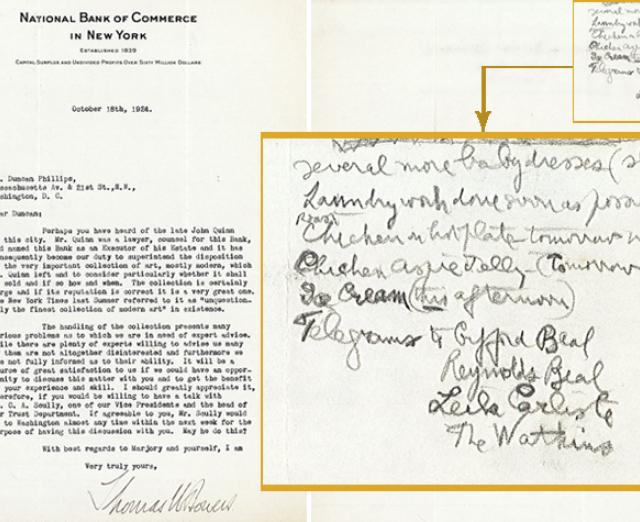 NATIONAL BANK OF COMMERCE
IN NEW YORK
ESTABLISHED 1839
CAPITAL SURPLUS AND UNDIVIDED PROFITS OVER SIXTY MILLION DOLLARS
October 18th, 1924.
. Duncan Phillips,
ssachusetts Av. & 21st St., N.W.,
shington, D. C.
ar Duncan:
Perhaps you have heard of the late John Quinn
this city. Mr. Quinn was a lawyer, counsel for this Bank,
d named this Bank as an Executor of his Estate and it has
nsequently become our duty to superintend the disposition
the very important collection of art, mostly modern, which
. Quinn left and to consider particularly whether it shall
sold and if so how and when. The collection is certainly
rge and if its reputation is correct it is a very great one.
e New York Times last Summer referred to it as "unquestion-
ly the finest collection of modern art" in existence.
The handling of the collection presents many
rious problems as to which we are in need of expert advice.
ile there are plenty of experts willing to advise us many
them are not altogether disinterested and furthermore we
not fully informed as to their ability. It will be a
urce of great satisfaction to us if we could have an oppor-
nity to discuss this matter with you and to get the benefit
your experience and skill. I should greatly appreciate it,
erefore, if you would be willing to have a talk with
. C. A. Scully, one of our Vice Presidents and the head of
r Trust Department. If agreeable to you, Mr. Scully would
to Washington almost any time within the next week for the
rpose of having this discussion with you. May he do this?
With best regards to Marjory and yourself, I am
Very truly yours,
Thomas W Bowers
several more baby dresses (s
Laundry work done soon as possi
Roast
Chicken on hot plate tomorrow n
Chicken aspic Jelly (Tomorrow
Ice Cream (this afternoon)
Telegrams to Gifford Beal
Reynolds Beal
Leila Carlisle
The Watkins